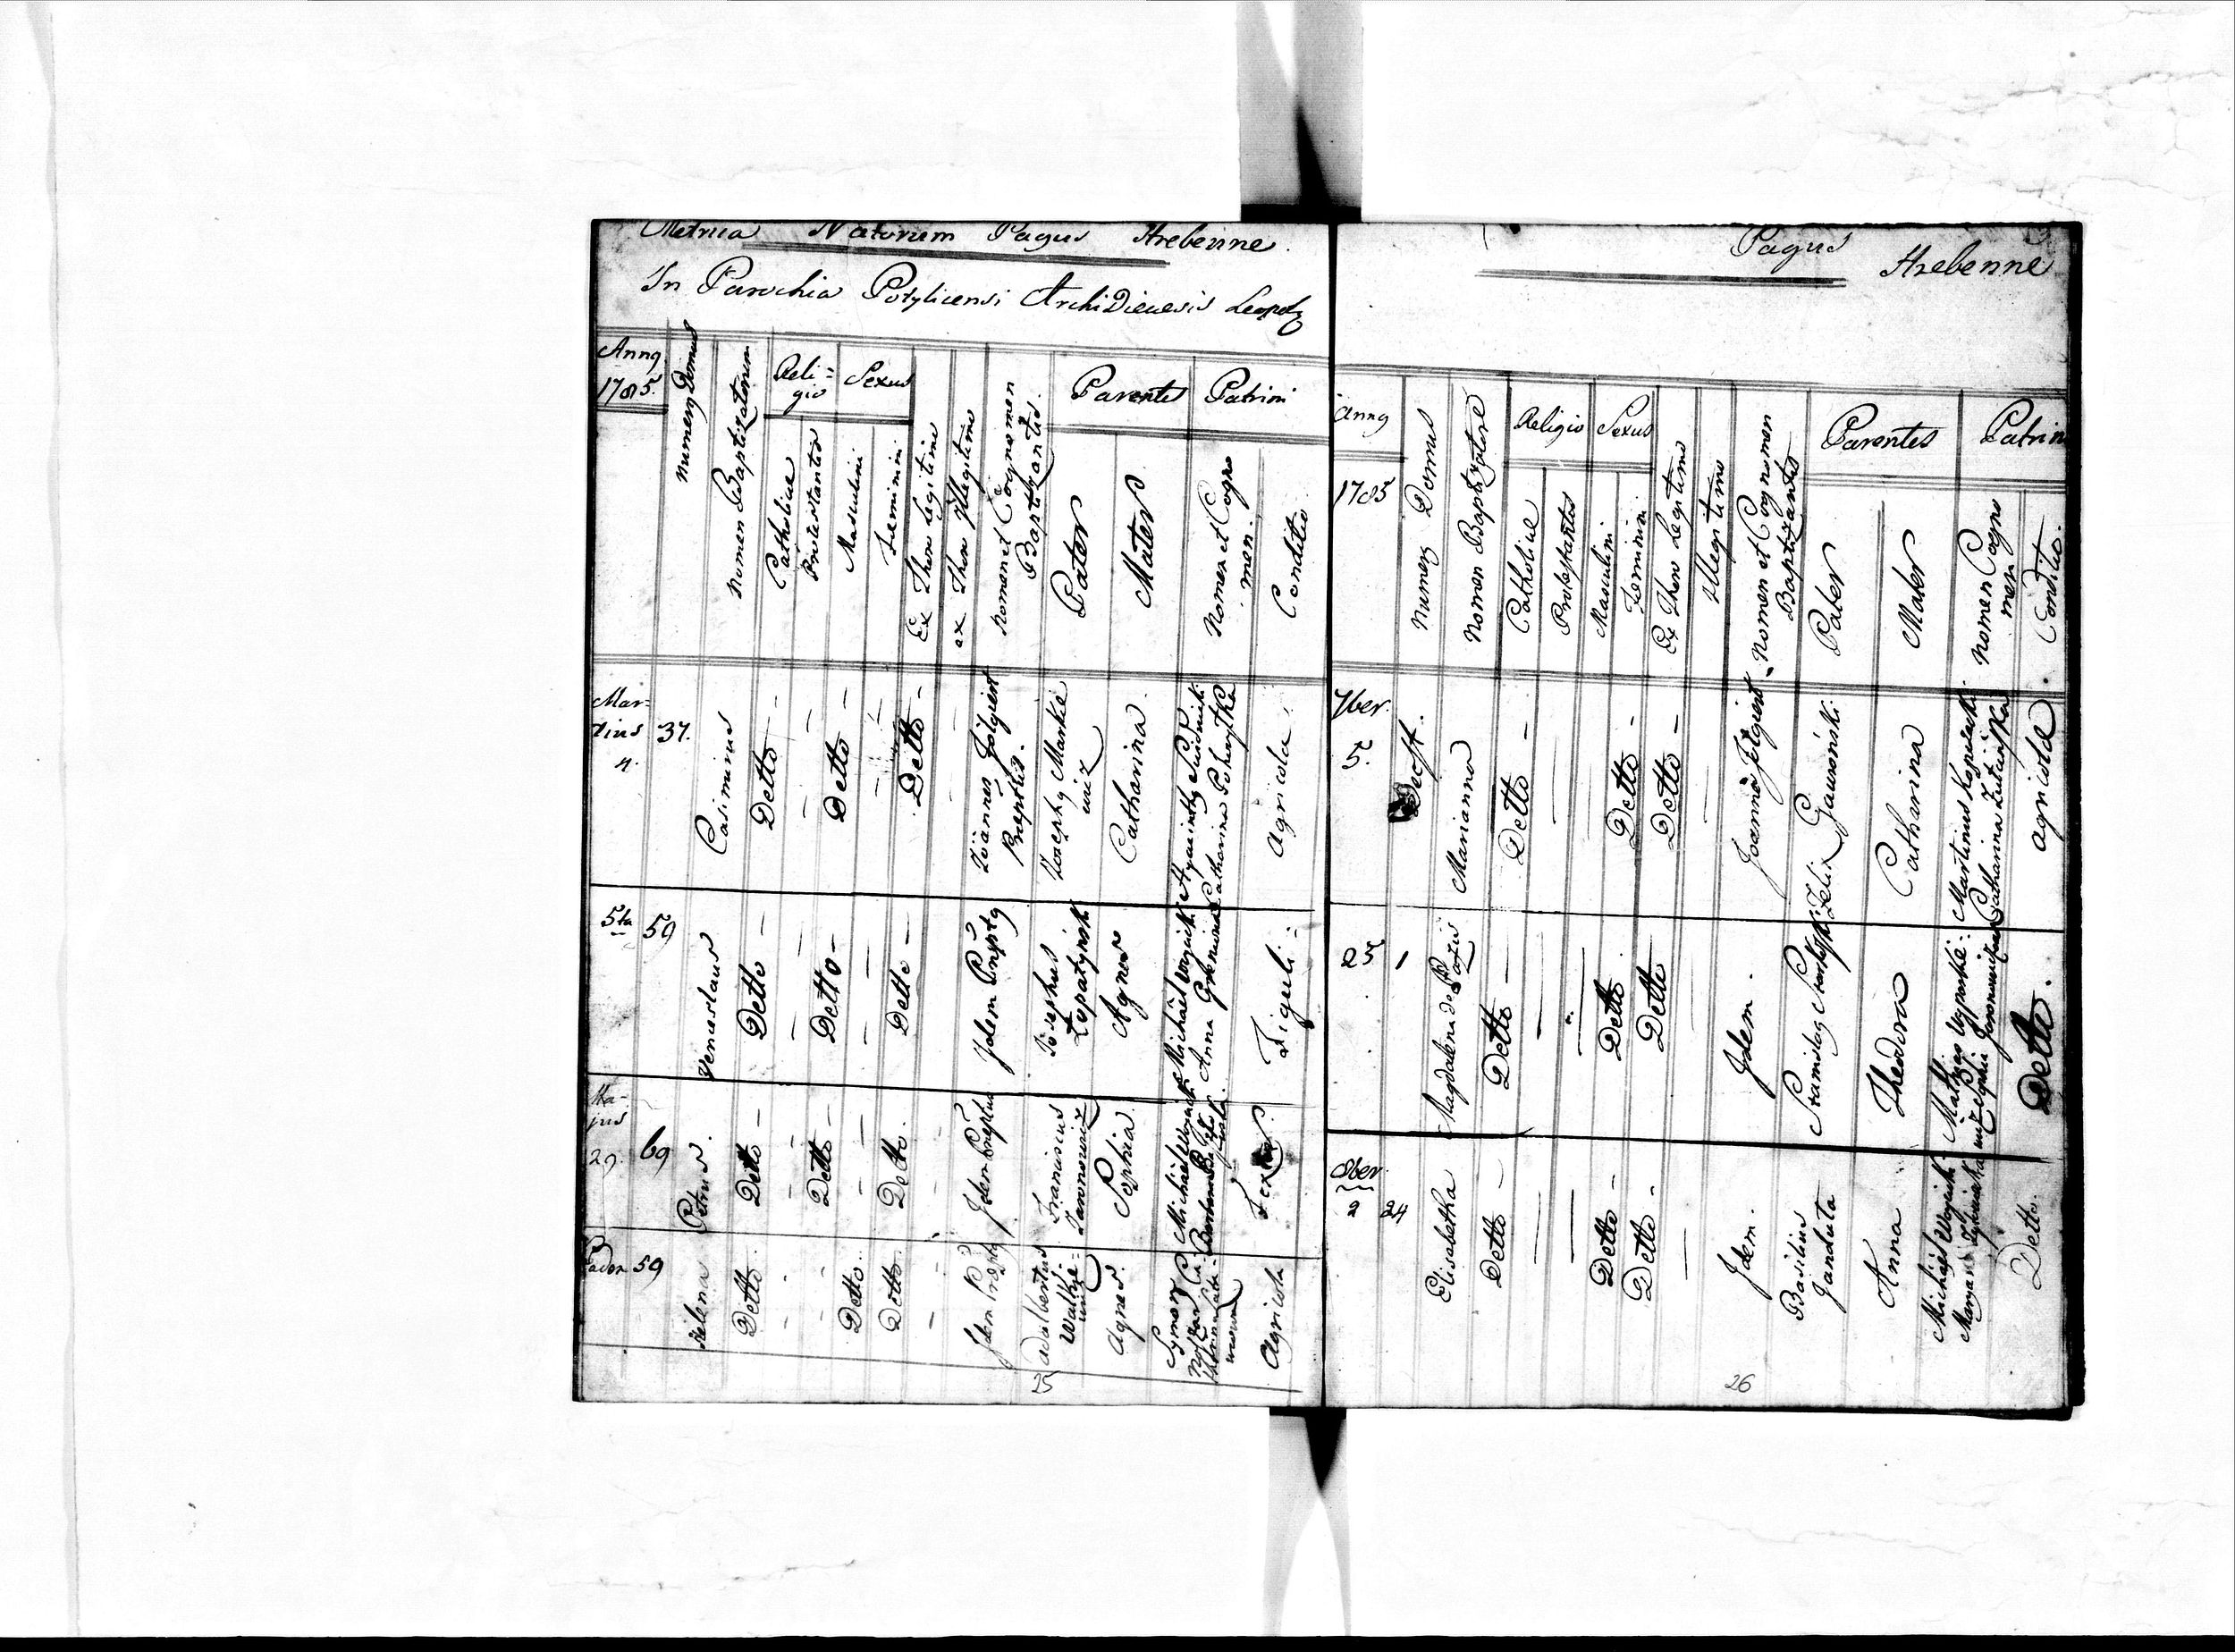 Metrica Natorum Pagus Hrebenne
In Parochia Potylicensi Archi Dieuesis Leopol
Anng
1785.
Numerg Domus
Nomen Baptizatorum
Reli=
gio
Catholicae
Protestantis
Sexus
Masculini
Feminini
Ex Thoro Legitimo
ex Thoro Illegitimo
Nomen et Cognomen
Baptizantis.
Parentes
Pater
Mater
Patrini
Nomen et Cogno
men.
Conditio
Mar=
tius
4.
37.
Casimirus
Detto -
-
Detto -
-
Detto -
-
Joannes Folgiert
Praeptus.
Josephg Markie
wicz
Catharina
Catharina
Agricola
5ta
59
Venceslaus
Detto -
-
Detto -
-
Detto -
Idem Praeptg
Josephus
Lopatynski
Agnes
Anna
Figuli
Ma-
jus
29.
69
Petrus.
Detto -
-
Detto -
-
Detto.
Idem Praeptus
Franciscus
Jaronowicz
Sophia
Michael
Barbara
Textor.
Eadem 59
Helena
Detto.
-
-
Detto.
Detto.
-
Idem Praeptg
Adalbertus
Agnes.
Symon
Agricola
25
Pagus Hrebenne
Anng
1785
Numerg Domus
Nomen Baptizatore
Religio
Catholicae
Protestantis
Sexus
Masculini
Feminini
Ex Thoro Legitimo
Illegitimo
Nomen et Cognomen
Baptizantis
Parentes
Pater
Mater
Patrin
Nomen Cogno
men
Conditio.
7ber.
5.
Marianna
Detto -
-
-
Detto -
Detto -
-
Joannes Folgiert
Felix Gawroński
Catharina
Martinus Kopecki
Catharina
agricola
25
1
Magdalena de Pazis
Detto -
-
-
Detto
Detto
Idem.
Stanislag
Theodora
Mathias
Detto.
8ber
2
24
Elisabetha
Detto -
-
-
Detto -
Detto -
-
Idem.
Basilius
Janduta
Anna
Michael
Detto.
26